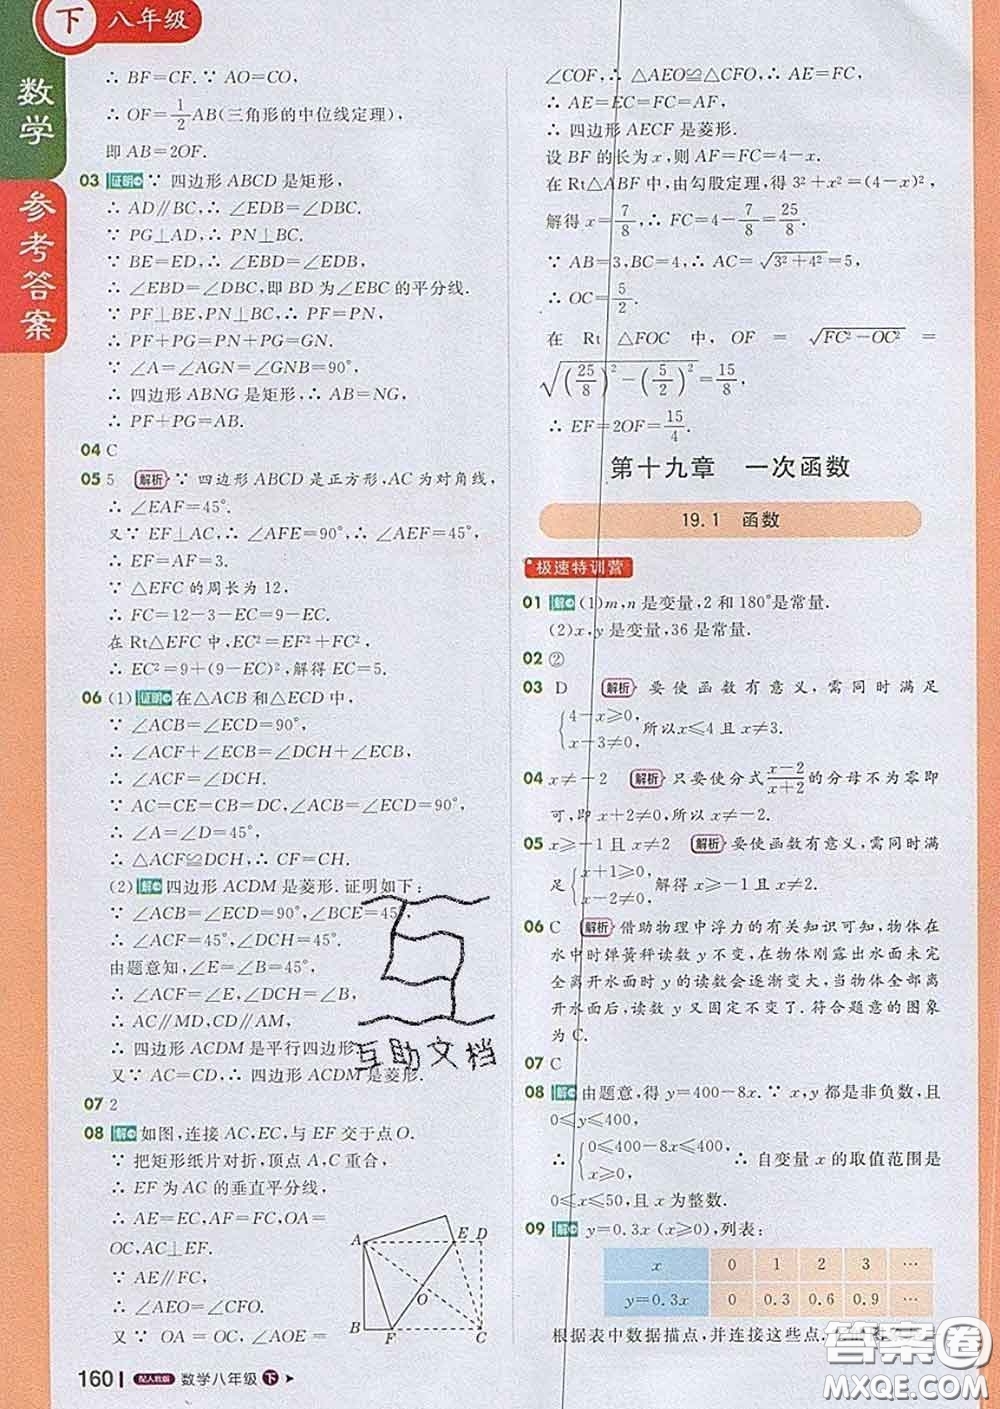 下 八年级
数学
参考答案
∴ BF=CF.∵ AO=CO,
∴ OF=1/2AB(三角形的中位线定理),
即 AB=2OF.
03 证明 ∵ 四边形 ABCD 是矩形,
∴ AD∥BC,∴ ∠EDB=∠DBC.
∵ PG⊥AD,∴ PN⊥BC.
∵ BE=ED,∴ ∠EBD=∠EDB,
∴ ∠EBD=∠DBC,即 BD 为∠EBC 的平分线.
∵ PF⊥BE,PN⊥BC,∴ PF=PN,
∴ PF+PG=PN+PG=GN.
∵ ∠A=∠AGN=∠GNB=90°,
∴ 四边形 ABNG 是矩形,∴ AB=NG,
∴ PF+PG=AB.
04 C
05 5 解析 ∵ 四边形 ABCD 是正方形,AC 为对角线,
∴ ∠EAF=45°.
又∵ EF⊥AC,∴ ∠AFE=90°,∴ ∠AEF=45°,
∴ EF=AF=3.
∵ △EFC 的周长为 12,
∴ FC=12-3-EC=9-EC.
在 Rt△EFC 中,EC²=EF²+FC²,
∴ EC²=9+(9-EC)²,解得 EC=5.
06 (1) 证明 在△ACB 和△ECD 中,
∵ ∠ACB=∠ECD=90°,
∴ ∠ACF+∠ECB=∠DCH+∠ECB,
∴ ∠ACF=∠DCH.
∵ AC=CE=CB=DC,∠ACB=∠ECD=90°,
∴ ∠A=∠D=45°,
∴ △ACF≌△DCH,∴ CF=CH.
(2) 解 四边形 ACDM 是菱形.证明如下:
∵ ∠ACB=∠ECD=90°,∠BCE=45°,
∴ ∠ACF=45°,∠DCH=45°.
由题意知,∠E=∠B=45°,
∴ ∠ACF=∠E,∠DCH=∠B,
∴ AC∥MD,CD∥AM,
∴ 四边形 ACDM 是平行四边形.
又∵ AC=CD,∴ 四边形 ACDM 是菱形.
07 2
08 解 如图,连接 AC,EC,与 EF 交于点 O.
∵ 把矩形纸片对折,顶点 A,C 重合,
∴ EF 为 AC 的垂直平分线,
∴ AE=EC,AF=FC,OA=
OC,AC⊥EF.
∵ AE∥FC,
∴ ∠AEO=∠CFO.
又∵ OA=OC,∠AOE=
A E D
O
B F C
∠COF,∴ △AEO≌△CFO,∴ AE=FC,
∴ AE=EC=FC=AF,
∴ 四边形 AECF 是菱形.
设 BF 的长为 x,则 AF=FC=4-x.
在 Rt△ABF 中,由勾股定理,得 3²+x²=(4-x)²,
解得 x=7/8,∴ FC=4-7/8=25/8.
∵ AB=3,BC=4,∴ AC=√(3²+4²)=5,
∴ OC=5/2.
在 Rt △FOC 中, OF = √(FC²-OC²) =
√((25/8)²-(5/2)²)=15/8,
∴ EF=2OF=15/4.
第十九章 一次函数
19.1 函数
极速特训营
01 解 (1)m,n 是变量,2 和 180°是常量.
(2)x,y 是变量,36 是常量.
02 ②
03 D 解析 要使函数有意义,需同时满足
{4-x≥0, x-3≠0, 所以 x≤4 且 x≠3.
04 x≠-2 解析 只要使分式(x-2)/(x+2)的分母不为零即
可,即 x+2≠0,所以 x≠-2.
05 x≥-1 且 x≠2 解析 要使函数有意义,需同时满
足{x+1≥0, x-2≠0, 解得 x≥-1 且 x≠2.
06 C 解析 借助物理中浮力的有关知识可知,物体在
水中时弹簧秤读数 y 不变,在物体刚露出水面未完
全离开水面时 y 的读数会逐渐变大,当物体全部离
开水面后,读数 y 又固定不变了.符合题意的图象
为 C.
07 C
08 解 由题意,得 y=400-8x.∵ x,y 都是非负数,且
0≤y≤400,
∴ {0≤400-8x≤400, x≥0, ∴ 自变量 x 的取值范围是
0≤x≤50,且 x 为整数.
09 解 y=0.3x (x≥0),列表:
x 0 1 2 3 …
y=0.3x 0 0.3 0.6 0.9 …
根据表中数据描点,并连接这些点,
互助文档
160 配人教版 数学八年级 下
答案圈
MXQE.COM